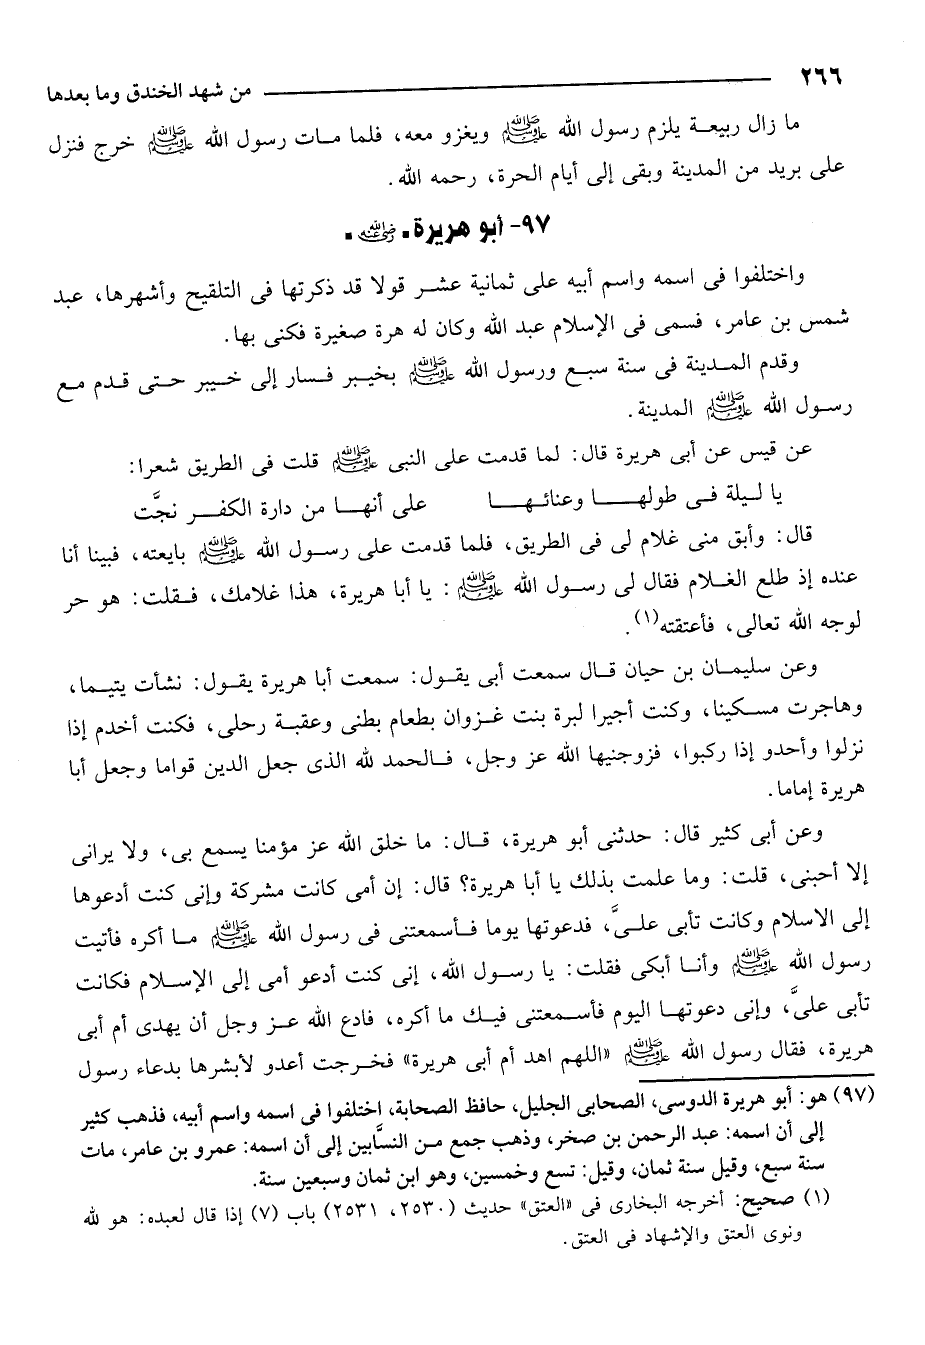 ٢٦٦ من شهد الخندق وما بعدها
ما زال ربيعة يلزم رسول الله ﷺ ويغزو معه، فلما مات رسول الله ﷺ خرج فنزل
على بريد من المدينة وبقى إلى أيام الحرة، رحمه الله.
٩٧- أبو هريرة. رضي الله عنه.
واختلفوا فى اسمه واسم أبيه على ثمانية عشر قولا قد ذكرتها فى التلقيح وأشهرها، عبد
شمس بن عامر، فسمى فى الإسلام عبد الله وكان له هرة صغيرة فكنى بها.
وقدم المدينة فى سنة سبع ورسول الله ﷺ بخيبر فسار إلى خيبر حتى قدم مع
رسول الله ﷺ المدينة.
عن قيس عن أبى هريرة قال: لما قدمت على النبى ﷺ قلت فى الطريق شعرا:
يا ليلة فى طولها وعنائها على أنها من دارة الكفر نجَّت
قال: وأبق منى غلام لى فى الطريق، فلما قدمت على رسول الله ﷺ بايعته، فبينا أنا
عنده إذ طلع الغلام فقال لى رسول الله ﷺ: يا أبا هريرة، هذا غلامك، فقلت: هو حر
لوجه الله تعالى، فأعتقته(١).
وعن سليمان بن حيان قال سمعت أبى يقول: سمعت أبا هريرة يقول: نشأت يتيما،
وهاجرت مسكينا، وكنت أجيرا لبرة بنت غزوان بطعام بطنى وعقبة رحلى، فكنت أخدم إذا
نزلوا وأحدو إذا ركبوا، فزوجنيها الله عز وجل، فالحمد لله الذى جعل الدين قواما وجعل أبا
هريرة إماما.
وعن أبى كثير قال: حدثنى أبو هريرة، قال: ما خلق الله عز مؤمنا يسمع بى، ولا يرانى
إلا أحبنى، قلت: وما علمت بذلك يا أبا هريرة؟ قال: إن أمى كانت مشركة وإنى كنت أدعوها
إلى الاسلام وكانت تأبى علىَّ، فدعوتها يوما فأسمعتنى فى رسول الله ﷺ ما أكره فأتيت
رسول الله ﷺ وأنا أبكى فقلت: يا رسول الله، إنى كنت أدعو أمى إلى الإسلام فكانت
تأبى علىَّ، وإنى دعوتها اليوم فأسمعتنى فيك ما أكره، فادع الله عز وجل أن يهدى أم أبى
هريرة، فقال رسول الله ﷺ «اللهم اهد أم أبى هريرة» فخرجت أعدو لأبشرها بدعاء رسول
(٩٧) هو: أبو هريرة الدوسى، الصحابى الجليل، حافظ الصحابة، اختلفوا فى اسمه واسم أبيه، فذهب كثير
إلى أن اسمه: عبد الرحمن بن صخر، وذهب جمع من النسَّابين إلى أن اسمه: عمرو بن عامر، مات
سنة سبع، وقيل سنة ثمان، وقيل: تسع وخمسين، وهو ابن ثمان وسبعين سنة.
(١) صحيح: أخرجه البخارى فى «العتق» حديث (٢٥٣٠، ٢٥٣١) باب (٧) إذا قال لعبده: هو لله
ونوى العتق والإشهاد فى العتق.